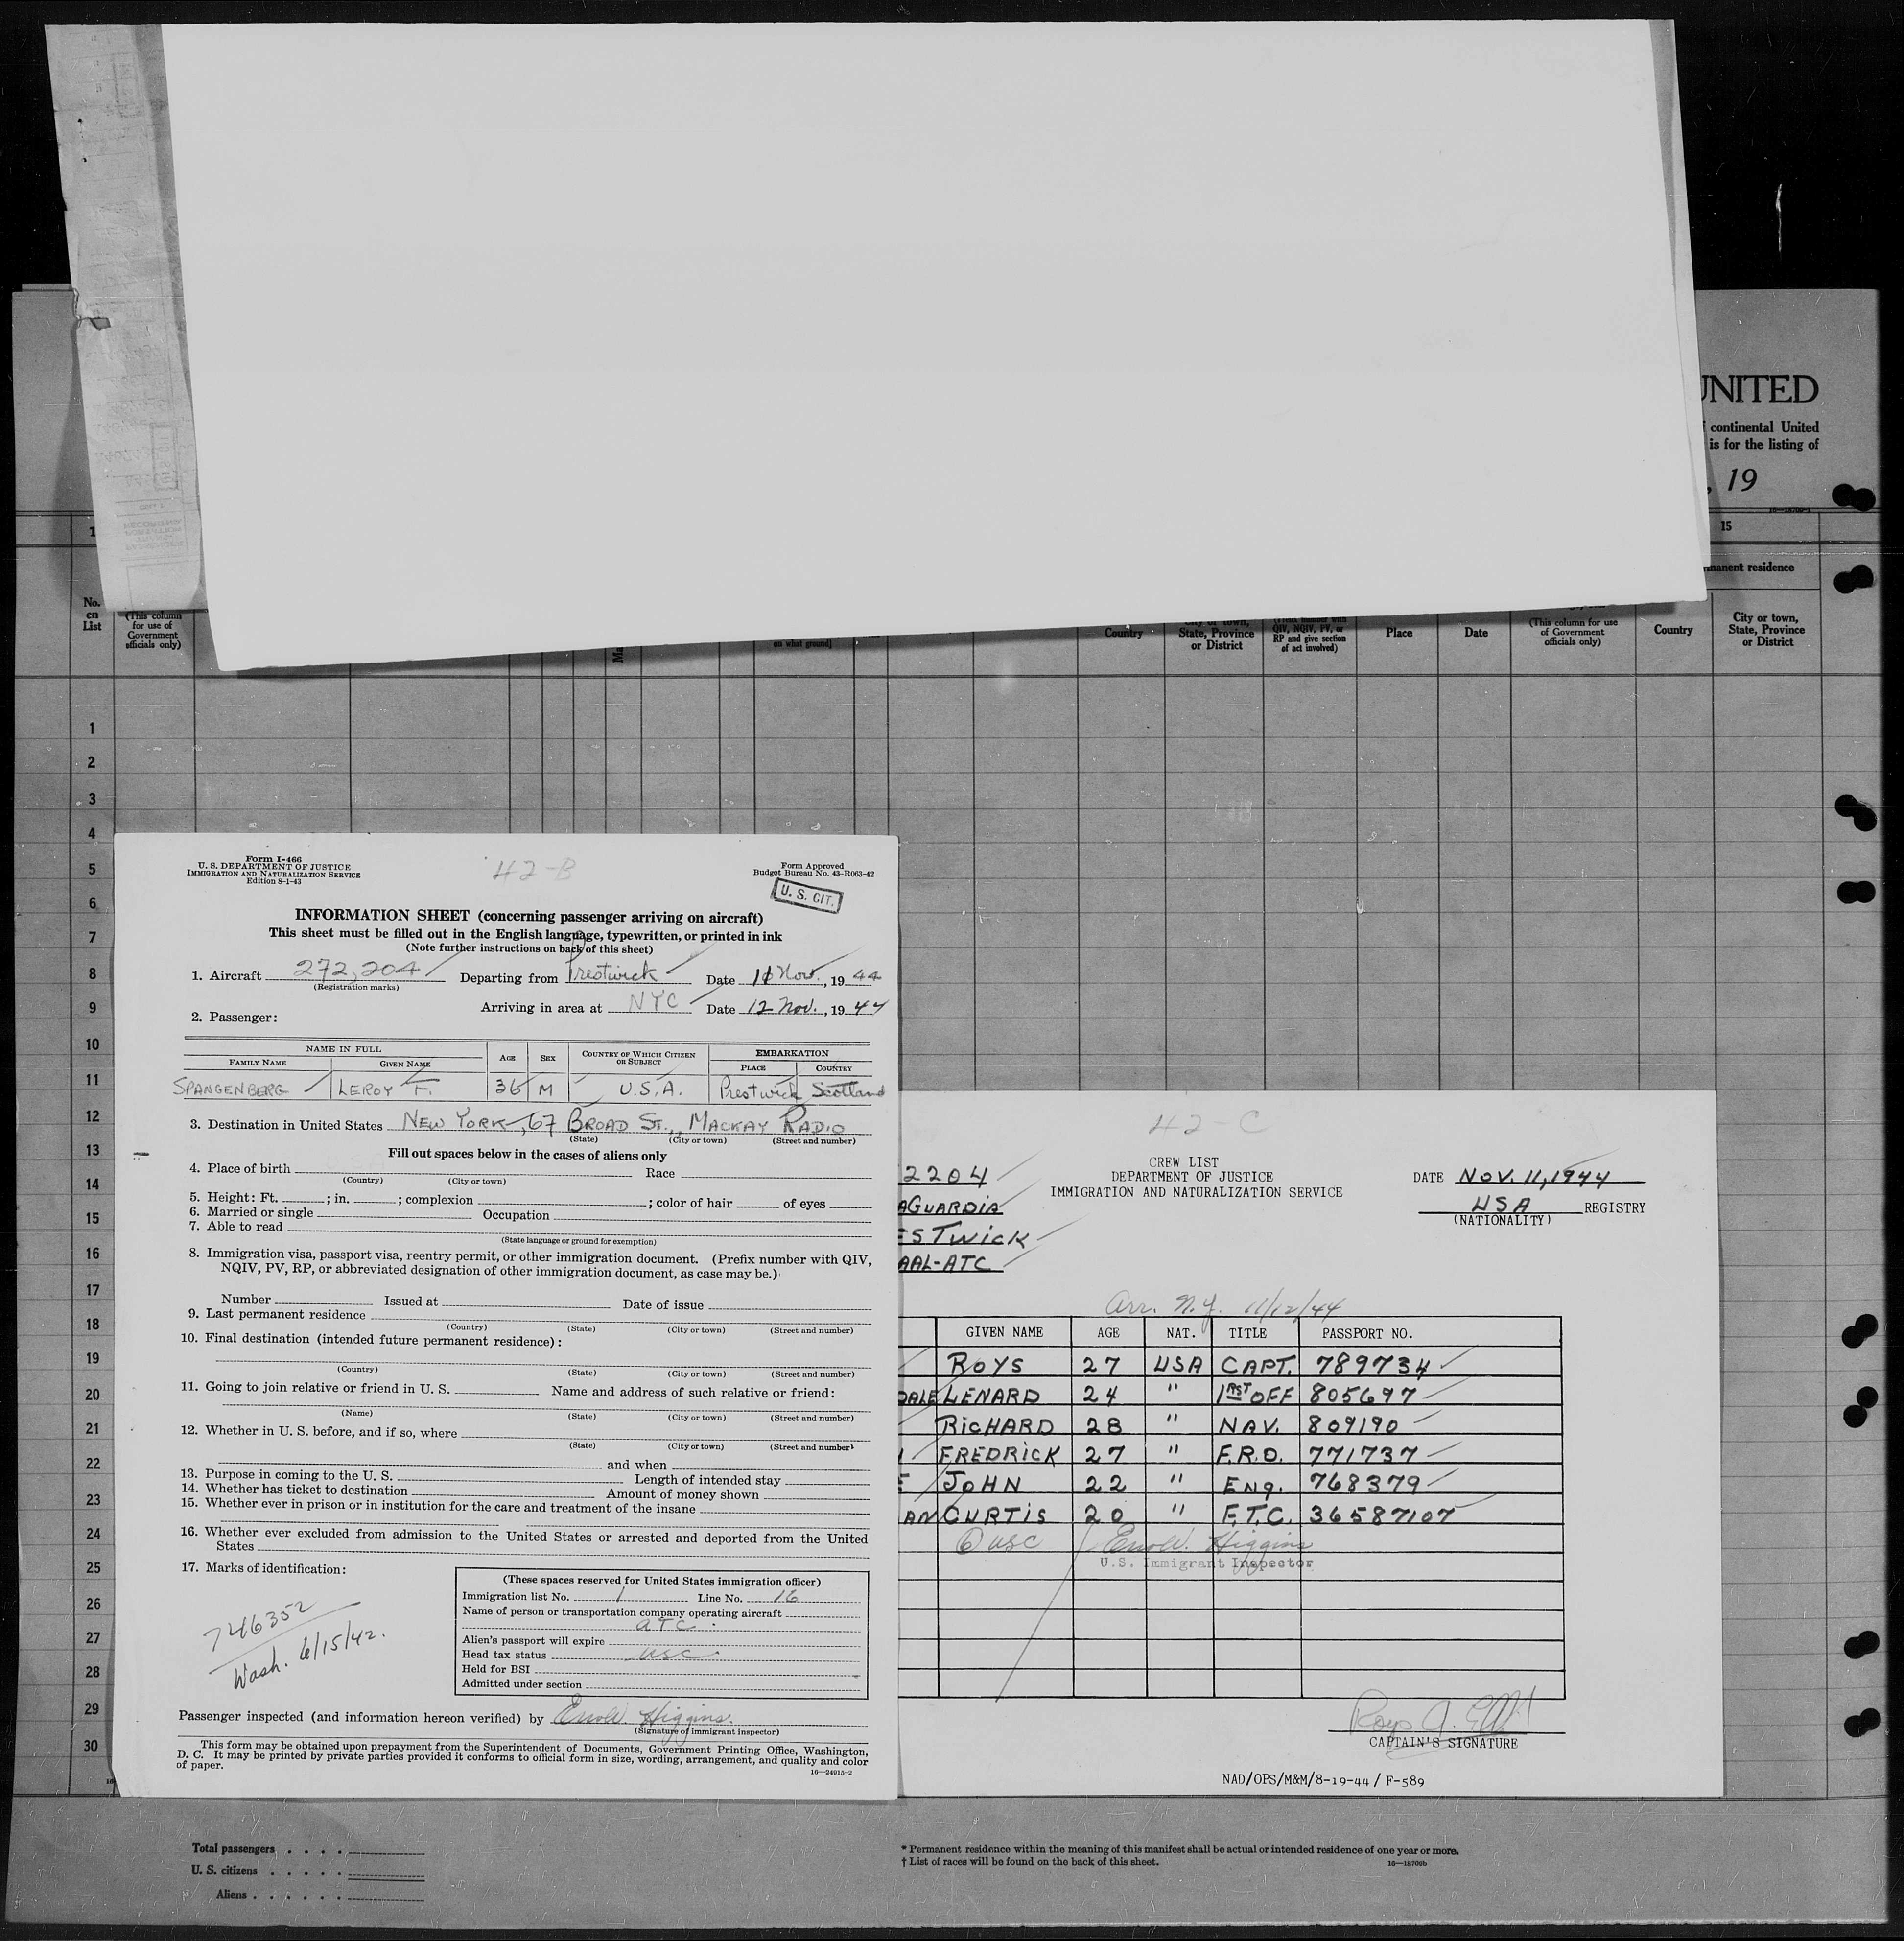 UNITED
continental United
is for the listing of
, 19
16—18709-1
15
permanent residence
No. on List
(This column for use of Government officials only)
on what ground]
Country
City or town, State, Province or District
QIV, NQIV, PV, or RP and give section of act involved)
Place
Date
(This column for use of Government officials only)
Country
City or town, State, Province or District
1
2
3
4
5
6
7
8
9
10
11
12
13
14
15
16
17
18
19
20
21
22
23
24
25
26
27
28
29
30
Form I-466
U. S. DEPARTMENT OF JUSTICE
IMMIGRATION AND NATURALIZATION SERVICE
Edition 8-1-43
42-B
Form Approved
Budget Bureau No. 43-R063-42
U. S. CIT.
INFORMATION SHEET (concerning passenger arriving on aircraft)
This sheet must be filled out in the English language, typewritten, or printed in ink
(Note further instructions on back of this sheet)
1. Aircraft 272,204 Departing from Prestwick Date 11 Nov., 19 44
(Registration marks)
Arriving in area at NYC Date 12 Nov., 19 44
2. Passenger:
NAME IN FULL AGE SEX COUNTRY OF WHICH CITIZEN OR SUBJECT EMBARKATION
FAMILY NAME GIVEN NAME PLACE COUNTRY
SPANGENBERG LEROY F. 36 M U.S.A. Prestwick Scotland
3. Destination in United States NEW YORK, 67 BROAD ST., MACKAY RADIO
(State) (City or town) (Street and number)
Fill out spaces below in the cases of aliens only
4. Place of birth Race
(Country) (City or town)
5. Height: Ft. ; in. ; complexion ; color of hair of eyes
6. Married or single Occupation
7. Able to read
(State language or ground for exemption)
8. Immigration visa, passport visa, reentry permit, or other immigration document. (Prefix number with QIV,
NQIV, PV, RP, or abbreviated designation of other immigration document, as case may be.)
Number Issued at Date of issue
9. Last permanent residence
(Country) (State) (City or town) (Street and number)
10. Final destination (intended future permanent residence):
(Country) (State) (City or town) (Street and number)
11. Going to join relative or friend in U. S. Name and address of such relative or friend:
(Name) (State) (City or town) (Street and number)
12. Whether in U. S. before, and if so, where
(State) (City or town) (Street and number)
and when
13. Purpose in coming to the U. S. Length of intended stay
14. Whether has ticket to destination Amount of money shown
15. Whether ever in prison or in institution for the care and treatment of the insane
16. Whether ever excluded from admission to the United States or arrested and deported from the United
States
17. Marks of identification:
746352
Wash. 6/15/42.
(These spaces reserved for United States immigration officer)
Immigration list No. 1 Line No. 16
Name of person or transportation company operating aircraft
ATC.
Alien's passport will expire
Head tax status USC.
Held for BSI
Admitted under section
Passenger inspected (and information hereon verified) by Higgins.
(Signature of immigrant inspector)
This form may be obtained upon prepayment from the Superintendent of Documents, Government Printing Office, Washington,
D. C. It may be printed by private parties provided it conforms to official form in size, wording, arrangement, and quality and color
of paper.
16—24915-2
42-C
CREW LIST
DEPARTMENT OF JUSTICE
IMMIGRATION AND NATURALIZATION SERVICE
2204
AGUARDIA
ESTWICK
AAL-ATC
DATE NOV. 11, 1944
USA REGISTRY
(NATIONALITY)
Arr. N.Y. 11/12/44
GIVEN NAME AGE NAT. TITLE PASSPORT NO.
ROYS 27 USA CAPT. 789734
DALE LENARD 24 " 1RST OFF 805697
RICHARD 28 " NAV. 809190
FREDRICK 27 " F.R.O. 771737
E JOHN 22 " ENG. 768379
AN CURTIS 20 " F.T.C. 36587107
6 USC Higgins
U.S. Immigrant Inspector
CAPTAIN'S SIGNATURE
NAD/OPS/M&M/8-19-44 / F-589
Total passengers
U. S. citizens
Aliens
* Permanent residence within the meaning of this manifest shall be actual or intended residence of one year or more.
† List of races will be found on the back of this sheet.
16—18709b